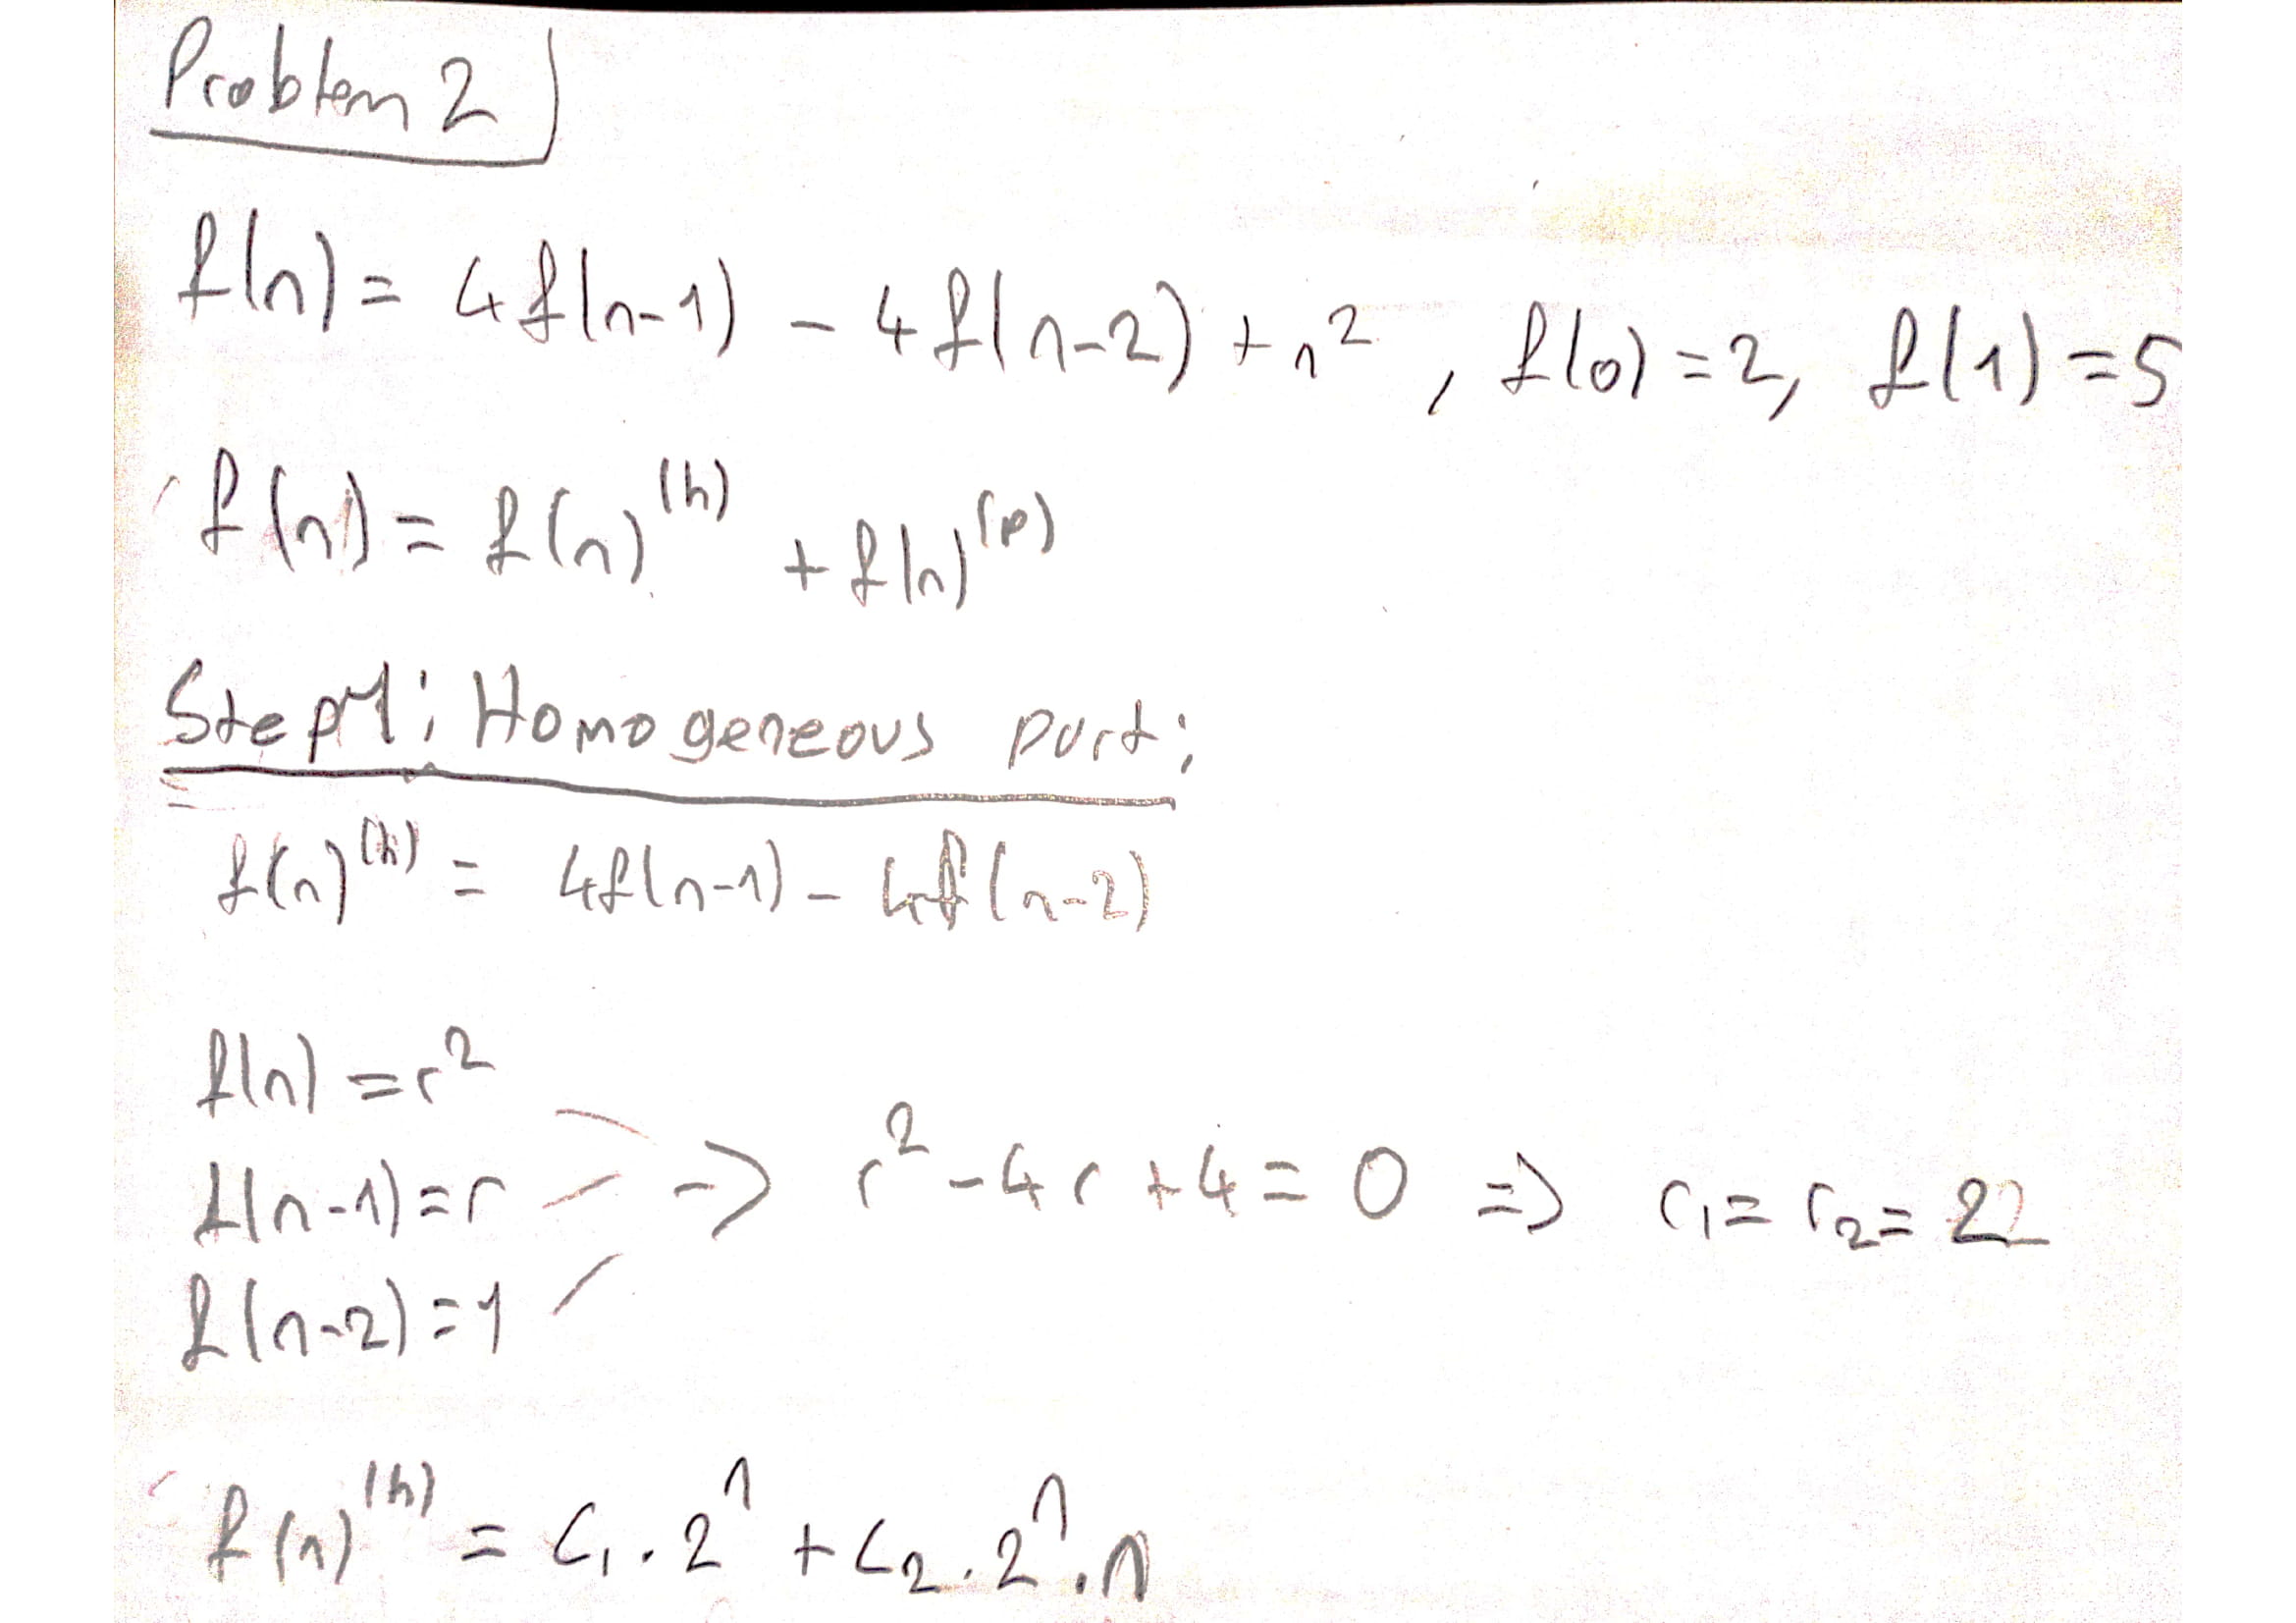 Problem 2
f(n) = 4f(n-1) - 4f(n-2) + n², f(0) = 2, f(1) = 5
f(n) = f(n)⁽ʰ⁾ + f(n)⁽ᵖ⁾
Step 1: Homogeneous part:
f(n)⁽ʰ⁾ = 4f(n-1) - 4f(n-2)
f(n) = r²
f(n-1) = r => r² - 4r + 4 = 0 => r₁ = r₂ = 2
f(n-2) = 1
f(n)⁽ʰ⁾ = C₁ . 2ⁿ + C₂ . 2ⁿ . n